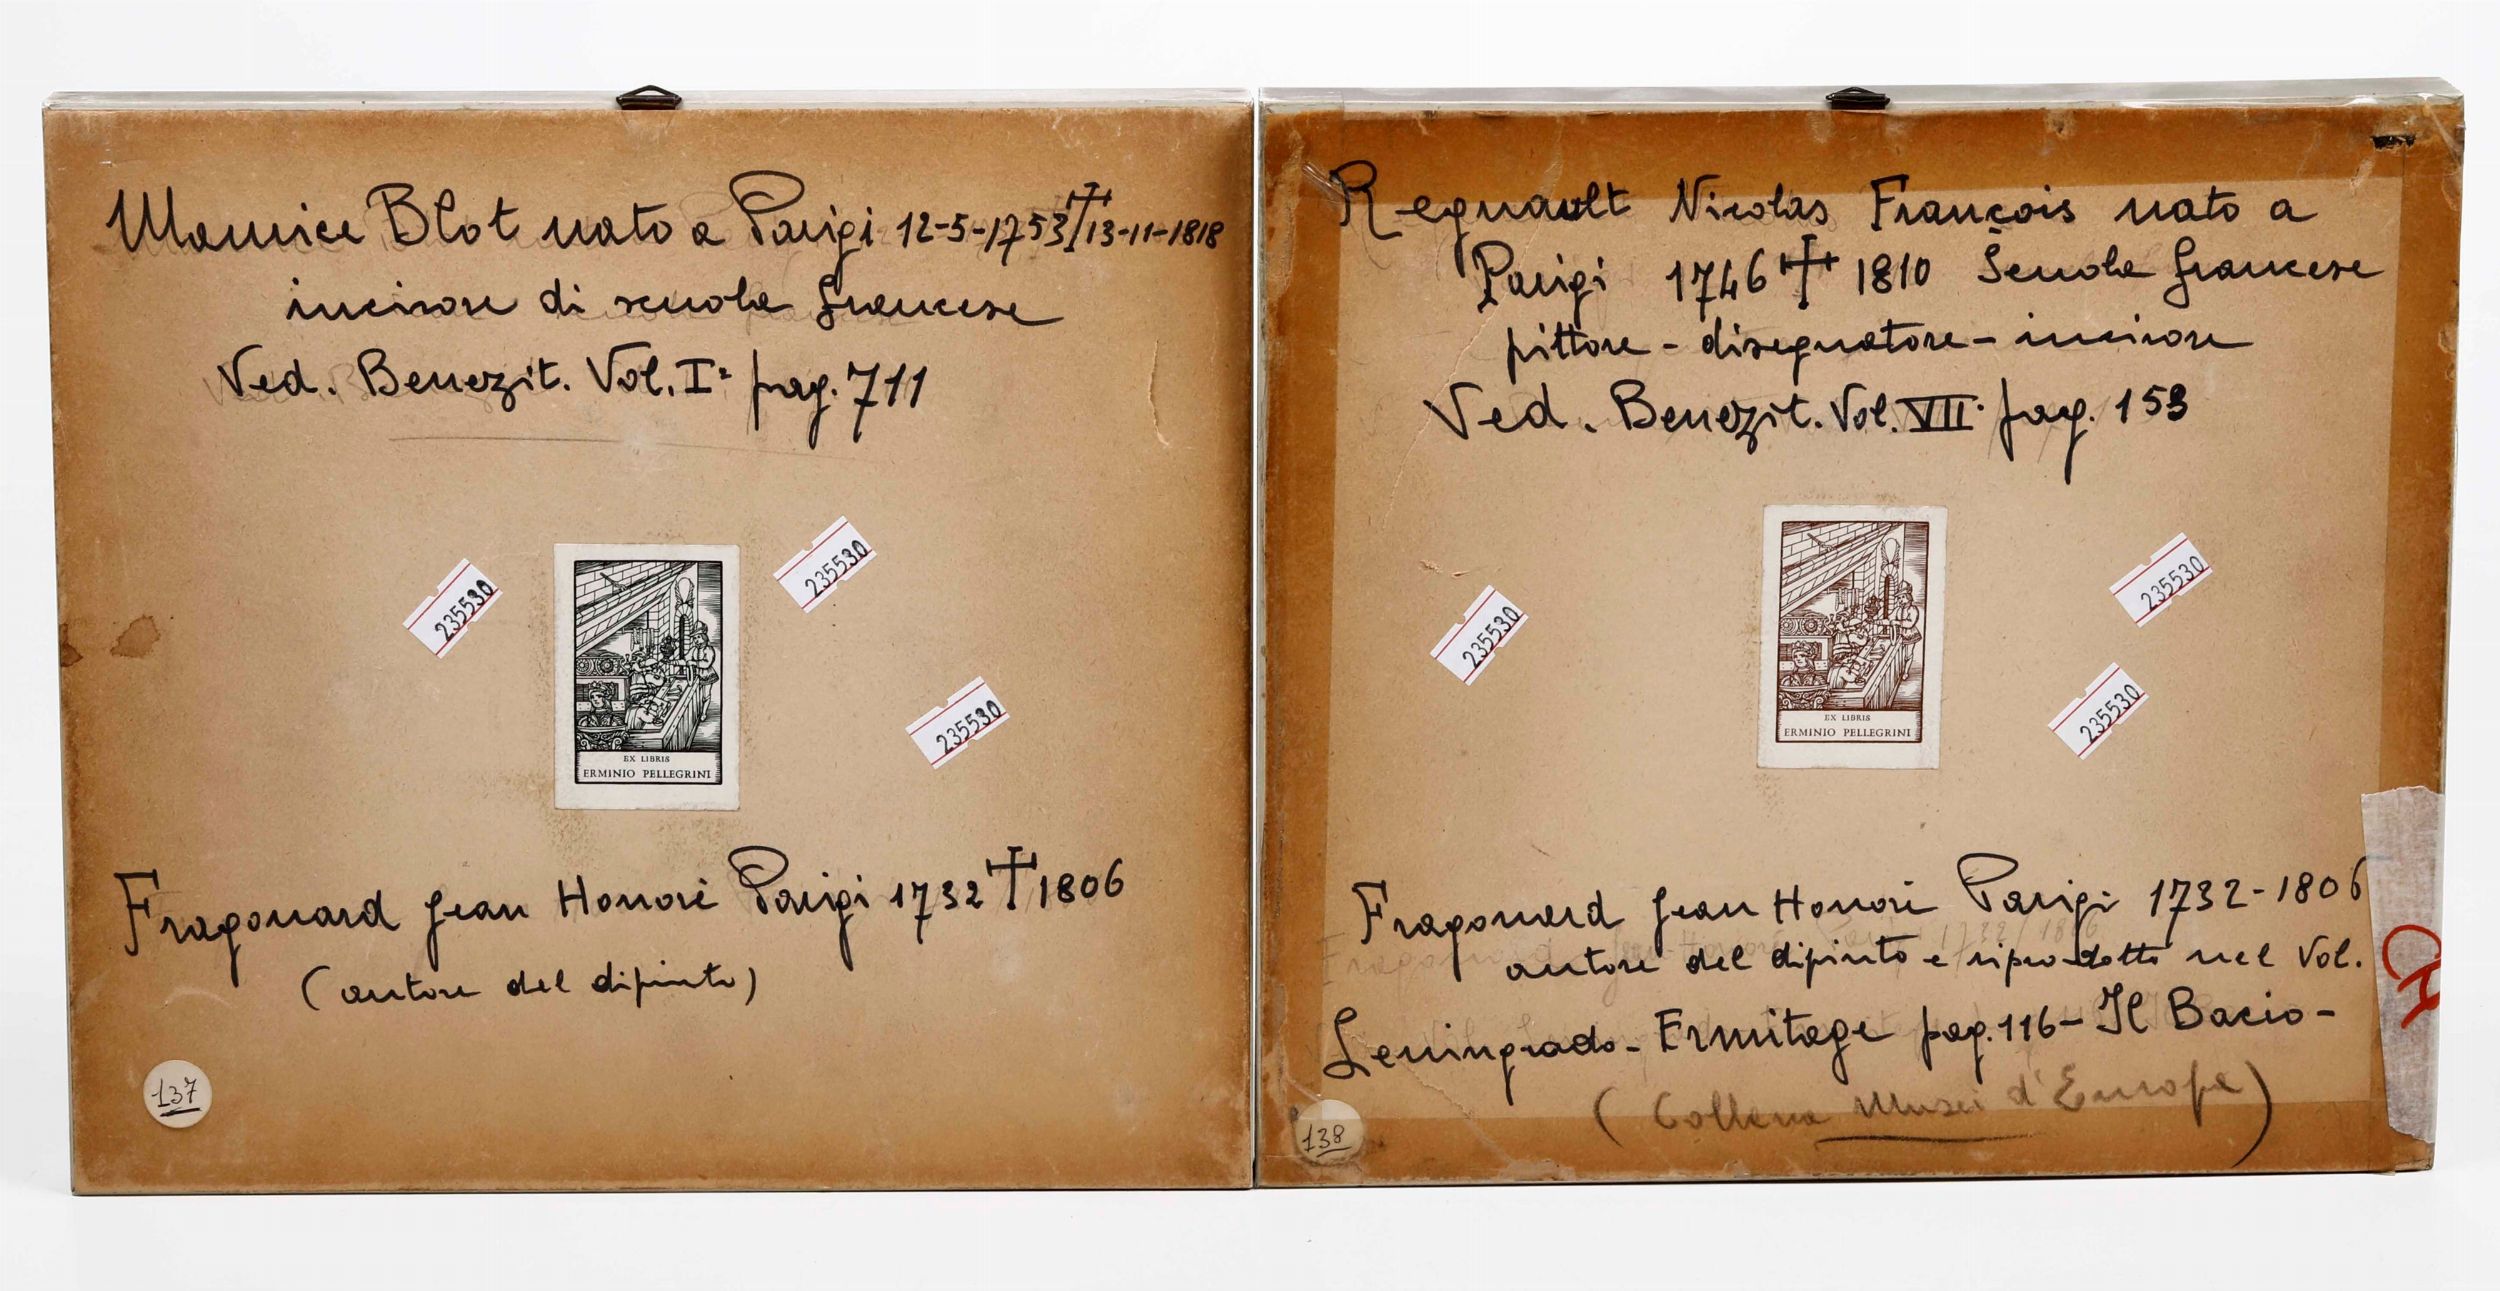 Maurice Blot nato a Parigi 12-5-1753 † 13-11-1818
incisore di scuola francese
Ved. Benezit. Vol. I° pag. 711
235530
235530
235530
EX LIBRIS
ERMINIO PELLEGRINI
Fragonard Jean Honoré Parigi 1732 † 1806
(autore del dipinto)
137
Regnault Nicolas François nato a
Parigi 1746 † 1810 Scuola francese
pittore - disegnatore - incisore
Ved. Benezit. Vol. VII° pag. 153
235530
235530
235530
EX LIBRIS
ERMINIO PELLEGRINI
Fragonard Jean Honoré Parigi 1732-1806
autore del dipinto e riprodotto nel Vol.
Leningrado - Ermitage pag. 116 - Il Bacio -
(Collana Musei d'Europa)
138